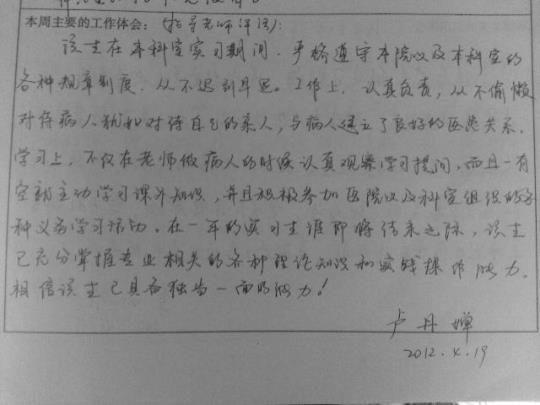 本周主要的工作体会：（指导老师评语）：
该生在本科室实习期间，严格遵守本院以及本科室的
各种规章制度，从不迟到早退。工作上，认真负责，从不偷懒
对待病人犹如对待自己的亲人，与病人建立了良好的医患关系。
学习上，不仅在老师做病人的时候认真观察学习提问，而且一有
空就主动学习课外知识，并且积极参加医院以及科室组织的各
种义务学习活动。在一年的实习生涯即将结束之际，该生
已充分掌握专业相关的各种理论知识和实践操作能力，
相信该生已具备独当一面的能力！
卢丹婵
2012.4.19